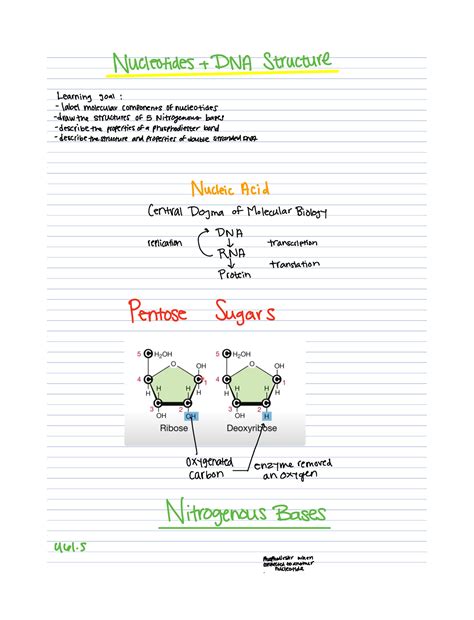 Nucleotides + DNA Structure
Learning goal :
- label molecular components of nucleotides
- draw the structures of 5 Nitrogenous bases
- describe the properties of a phosphodiester bond
- describe the structure and properties of double stranded DNA
Nucleic Acid
Central Dogma of Molecular Biology
DNA
replication transcription
RNA
translation
Protein
Pentose Sugars
5 C H2OH 5 C H2OH
O OH O OH
4 C C 1 4 C C 1
H H H H H H H H
C C C C
3 2 3 2
OH OH OH H
Ribose Deoxyribose
oxygenated carbon
enzyme removed an oxygen
Nitrogenous Bases
when
connected to another
nucleotide